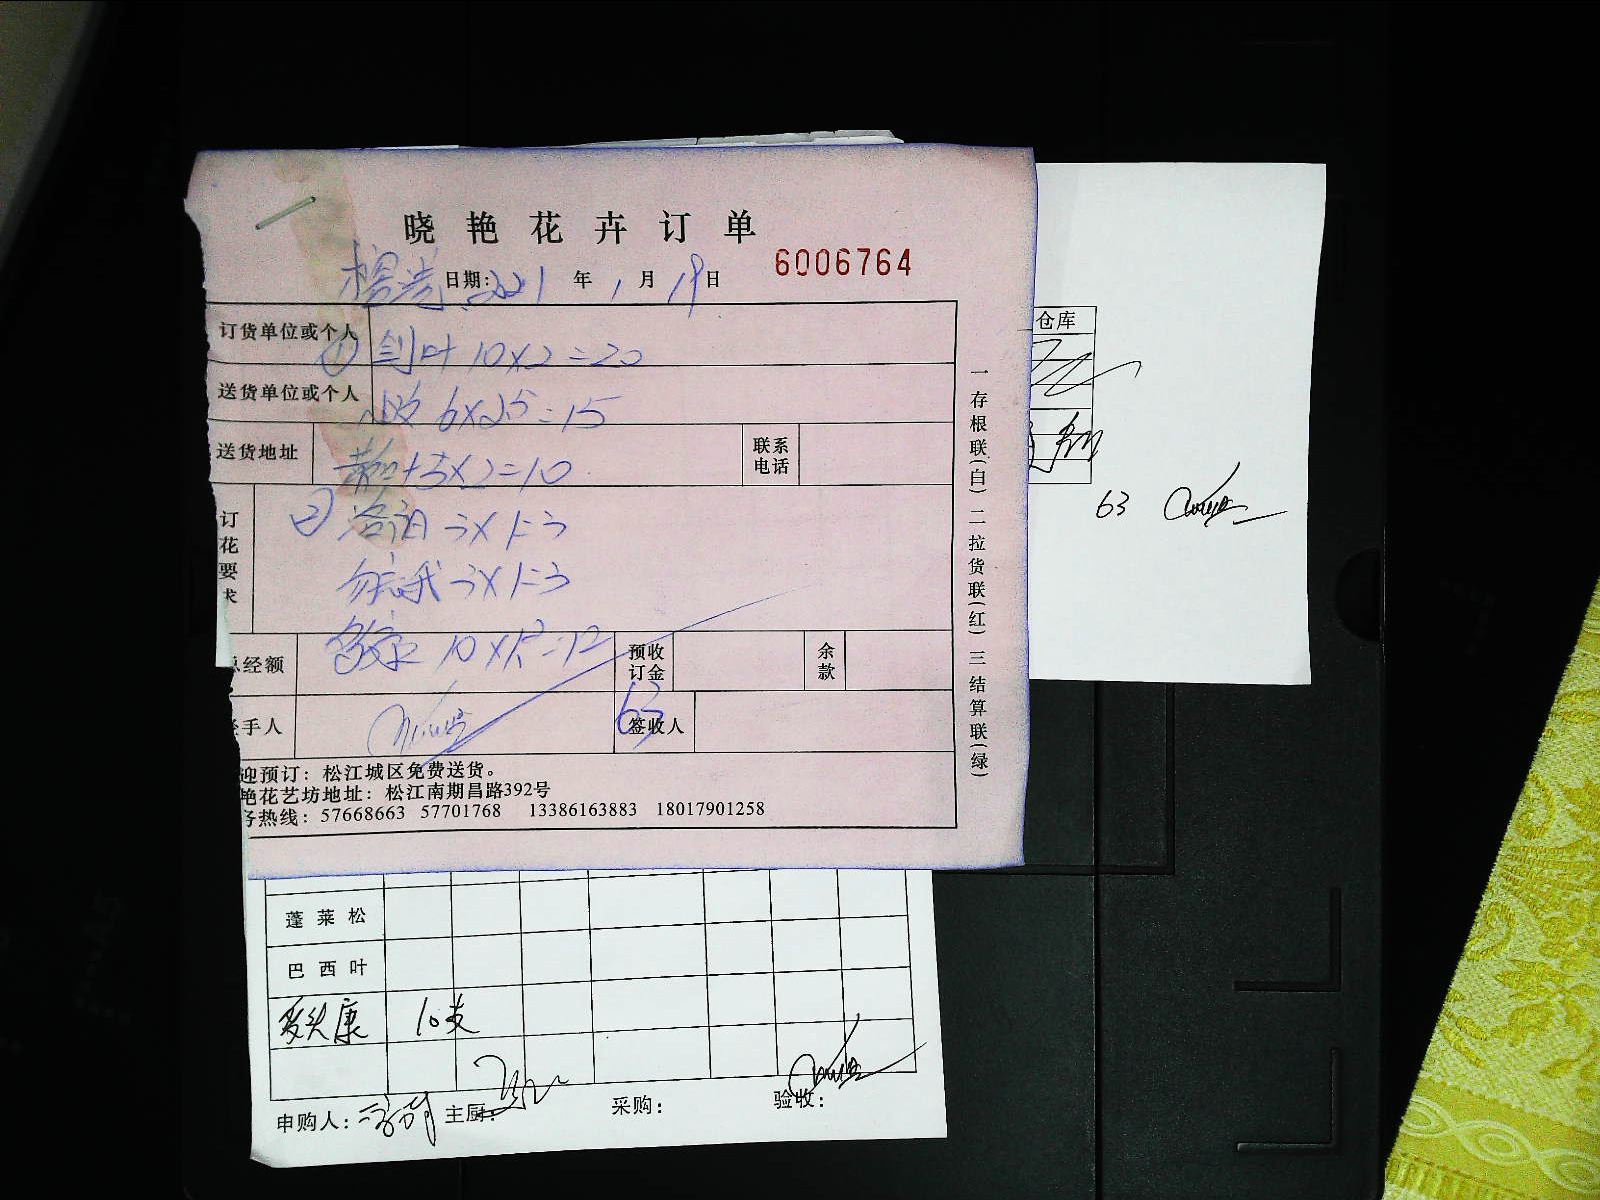 晓艳花卉订单
日期: 2021 年 1 月 19 日
6006764
订货单位或个人
① 剑叶 10×2=20
送货单位或个人
6×2.5=15
送货地址
+5×2=10
联系电话
订花要求
② 3×1=3
勿忘我 3×1=3
总经额
10×1.2=12
预收订金
余款
经手人
63
签收人
迎预订：松江城区免费送货。
艳花艺坊地址：松江南期昌路392号
务热线：57668663 57701768 13386163883 18017901258
一存根联(白) 二拉货联(红) 三结算联(绿)
仓库
63
蓬莱松
巴西叶
康 10支
申购人：
主厨：
采购：
验收：